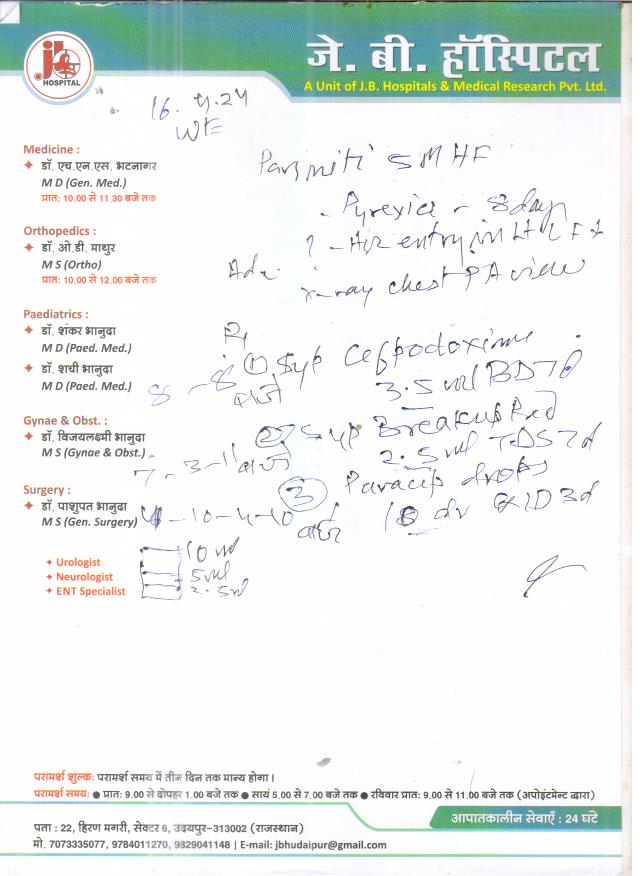 जे. बी. हॉस्पिटल
A Unit of J.B. Hospitals & Medical Research Pvt. Ltd.
HOSPITAL
16. 4.24
Wt=
Medicine :
डॉ. एच.एन.एस. भटनागर
M D (Gen. Med.)
प्रात: 10.00 से 11.30 बजे तक
Orthopedics :
डॉ. ओ.डी. माथुर
M S (Ortho)
प्रात: 10.00 से 12.00 बजे तक
Paediatrics :
डॉ. शंकर भानुदा
M D (Paed. Med.)
डॉ. शची भानुदा
M D (Paed. Med.)
Gynae & Obst. :
डॉ. विजयलक्ष्मी भानुदा
M S (Gynae & Obst.)
Surgery :
डॉ. पाशुपत भानुदा
M S (Gen. Surgery)
Urologist
Neurologist
ENT Specialist
5 M
- Pyrexia - 8 day
? - Air entry in
Adv. x-ray chest PA view
① Syp Cefpodoxime
8 - 8 बजे 3.5 ml BD 7d
② Syp
7 - 3 - 11 बजे 2.5 ml TDS 7d
③ Paracip drops
4 - 10 - 4 - 10 बजे QID 3d
10 ml
5 ml
2.5 ml
परामर्श शुल्क: परामर्श समय में तीन दिन तक मान्य होगा।
परामर्श समय: ● प्रात: 9.00 से दोपहर 1.00 बजे तक ● सायं 5.00 से 7.00 बजे तक ● रविवार प्रात: 9.00 से 11.00 बजे तक (अपोइंटमेन्ट द्वारा)
आपातकालीन सेवाएँ : 24 घंटे
पता : 22, हिरण मगरी, सेक्टर 6, उदयपुर-313002 (राजस्थान)
मो. 7073335077, 9784011270, 9829041148 | E-mail: jbhudaipur@gmail.com